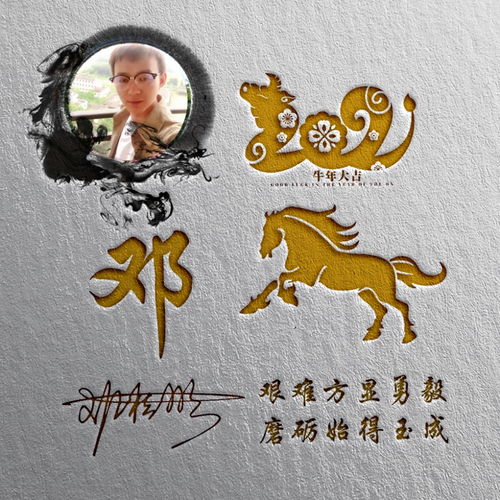 2021
牛年大吉
GOOD LUCK IN THE YEAR OF THE OX
邓
艰难方显勇毅
磨砺始得玉成